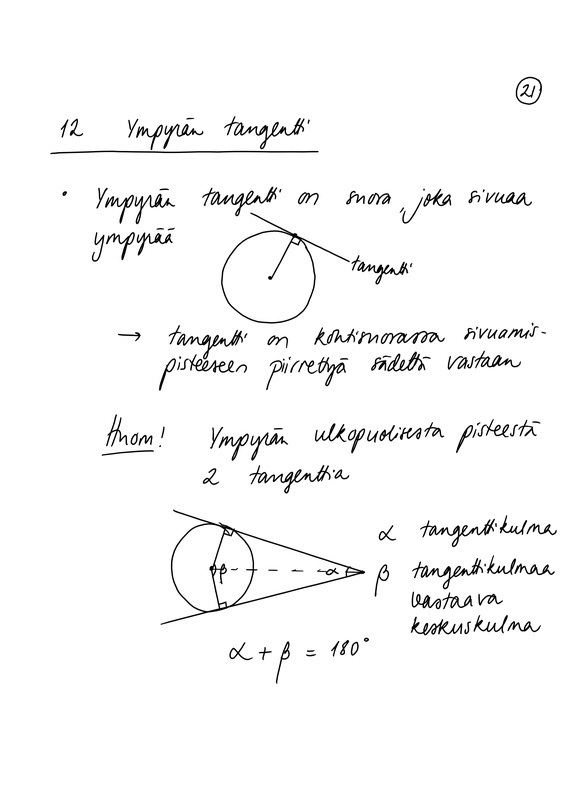 21
12 Ympyrän tangentti
• Ympyrän tangentti on suora, joka sivuaa
ympyrää
tangentti
→ tangentti on kohtisuorassa sivuamis-
pisteeseen piirrettyä sädettä vastaan
Huom! Ympyrän ulkopuolisesta pisteestä
2 tangenttia
α tangenttikulma
β α β tangenttikulmaa
vastaava
keskuskulma
α + β = 180°